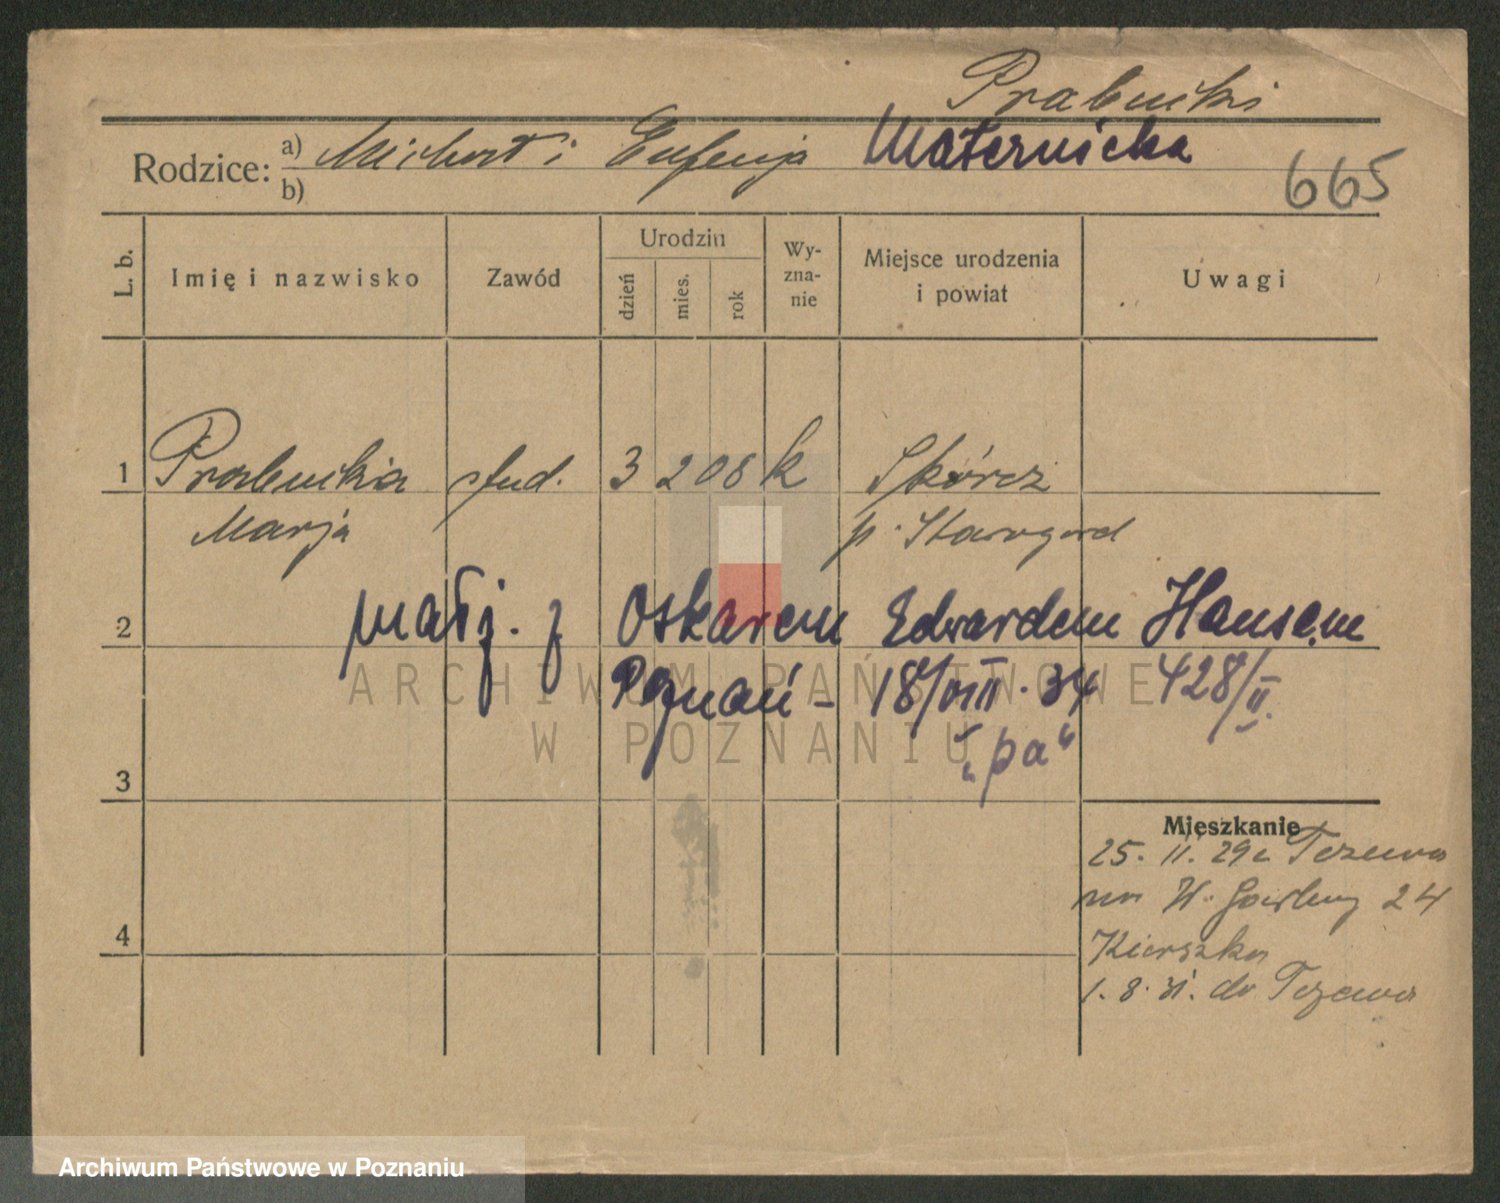 Prabucki
Rodzice: a) Michał i Eufemja Maternicka
b)
665
L. b. Imię i nazwisko Zawód Urodzin dzień mies. rok Wyznanie Miejsce urodzenia i powiat Uwagi
1 Prabucka stud. 3 2 08 k Skórcz
Marja p. Starogard
2 małż. z Oskarem Edwardem Hansem
Poznań - 18/VIII. 34 428/II.
"pa"
3
Mieszkanie
25. 11. 29 z Tczewa
na W. Garbary 24
4
1. 8. 31. do Tczewa
ARCHIWUM PAŃSTWOWE
W POZNANIU
Archiwum Państwowe w Poznaniu